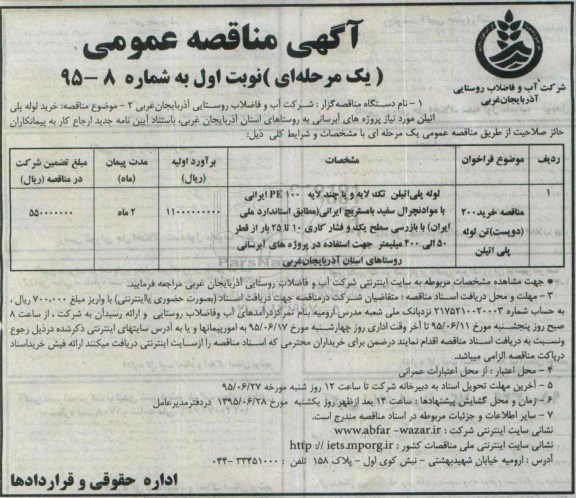 آگهی مناقصه عمومی
( یک مرحله‌ای ) نوبت اول به شماره ۸ – ۹۵
شرکت آب و فاضلاب روستایی
آذربایجان‌غربی
۱ – نام دستگاه مناقصه‌گزار : شرکت آب و فاضلاب روستایی آذربایجان‌غربی ۲ – موضوع مناقصه: خرید لوله پلی
اتیلن مورد نیاز پروژه های آبرسانی به روستاهای استان آذربایجان غربی، باستناد آیین نامه جدید ارجاع کار به پیمانکاران
حائز صلاحیت از طریق مناقصه عمومی یک مرحله ای با مشخصات و شرایط کلی ذیل:
ردیف
موضوع فراخوان
مشخصات
برآورد اولیه
(ریال)
مدت پیمان
(ماه)
مبلغ تضمین شرکت
در مناقصه (ریال)
۱
مناقصه خرید ۲۰۰
(دویست) تن لوله
پلی اتیلن
لوله پلی‌اتیلن تک لایه و یا چند لایه PE ۱۰۰ ایرانی
با موادنچرال سفید بامستربچ ایرانی(مطابق استاندارد ملی
ایران) با بازرسی سطح یک و فشار کاری ۱۰ تا ۲۵ بار از قطر
۵۰ الی ۴۰۰ میلیمتر جهت استفاده در پروژه های آبرسانی
روستاهای استان آذربایجان‌غربی
۱۱۰۰۰۰۰۰۰۰۰
۲ ماه
۵۵۰۰۰۰۰۰۰
● جهت مشاهده مشخصات مربوطه به سایت اینترنتی شرکت آب و فاضلاب روستایی آذربایجان غربی مراجعه فرمایید.
۳ – مهلت و محل دریافت اسناد مناقصه : متقاضیان شرکت درمناقصه جهت دریافت اسناد (بصورت حضوری یااینترنتی) با واریز مبلغ ۷۰۰،۰۰۰ ریال ،
به حساب شماره ۲۱۷۵۲۱۰۰۲۰۰۰۳ نزدبانک ملی شعبه مدرس ارومیه بنام تمرکزدرآمدهای آب وفاضلاب روستایی و ارائه رسیدآن به شرکت ، از ساعت ۸
صبح روز پنجشنبه مورخ ۹۵/۰۶/۱۱ تا آخر وقت اداری روز چهارشنبه مورخ ۹۵/۰۶/۱۷ به امورپیمانها و یا به آدرس سایتهای اینترنتی ذکرشده درذیل رجوع
ونسبت به دریافت اسناد مناقصه اقدام نمایند درضمن برای خریداران محترمی که اسناد مناقصه را ازسایت اینترنتی دریافت میکنند ارائه فیش خریداسناد
درپاکت مناقصه الزامی میباشد.
۴ – محل اعتبار : از محل اعتبارات عمرانی
۵ – آخرین مهلت تحویل اسناد به دبیرخانه شرکت تا ساعت ۱۲ روز شنبه مورخه ۹۵/۰۶/۲۷
۶ – زمان و محل گشایش پیشنهادها : ساعت ۱۴ بعد ازظهر روز یکشنبه مورخ ۱۳۹۵/۰۶/۲۸ دردفترمدیرعامل
۷ – سایر اطلاعات و جزئیات مربوطه در اسناد مناقصه مندرج است.
نشانی سایت اینترنتی شرکت : www.abfar -wazar.ir
نشانی سایت اینترنتی ملی مناقصات کشور : http :// iets.mporg.ir
آدرس : ارومیه خیابان شهیدبهشتی – نبش کوی اول – پلاک ۱۵۸ تلفن : ۳۳۴۵۱۰۰۰ –۰۴۴
اداره حقوقی و قراردادها